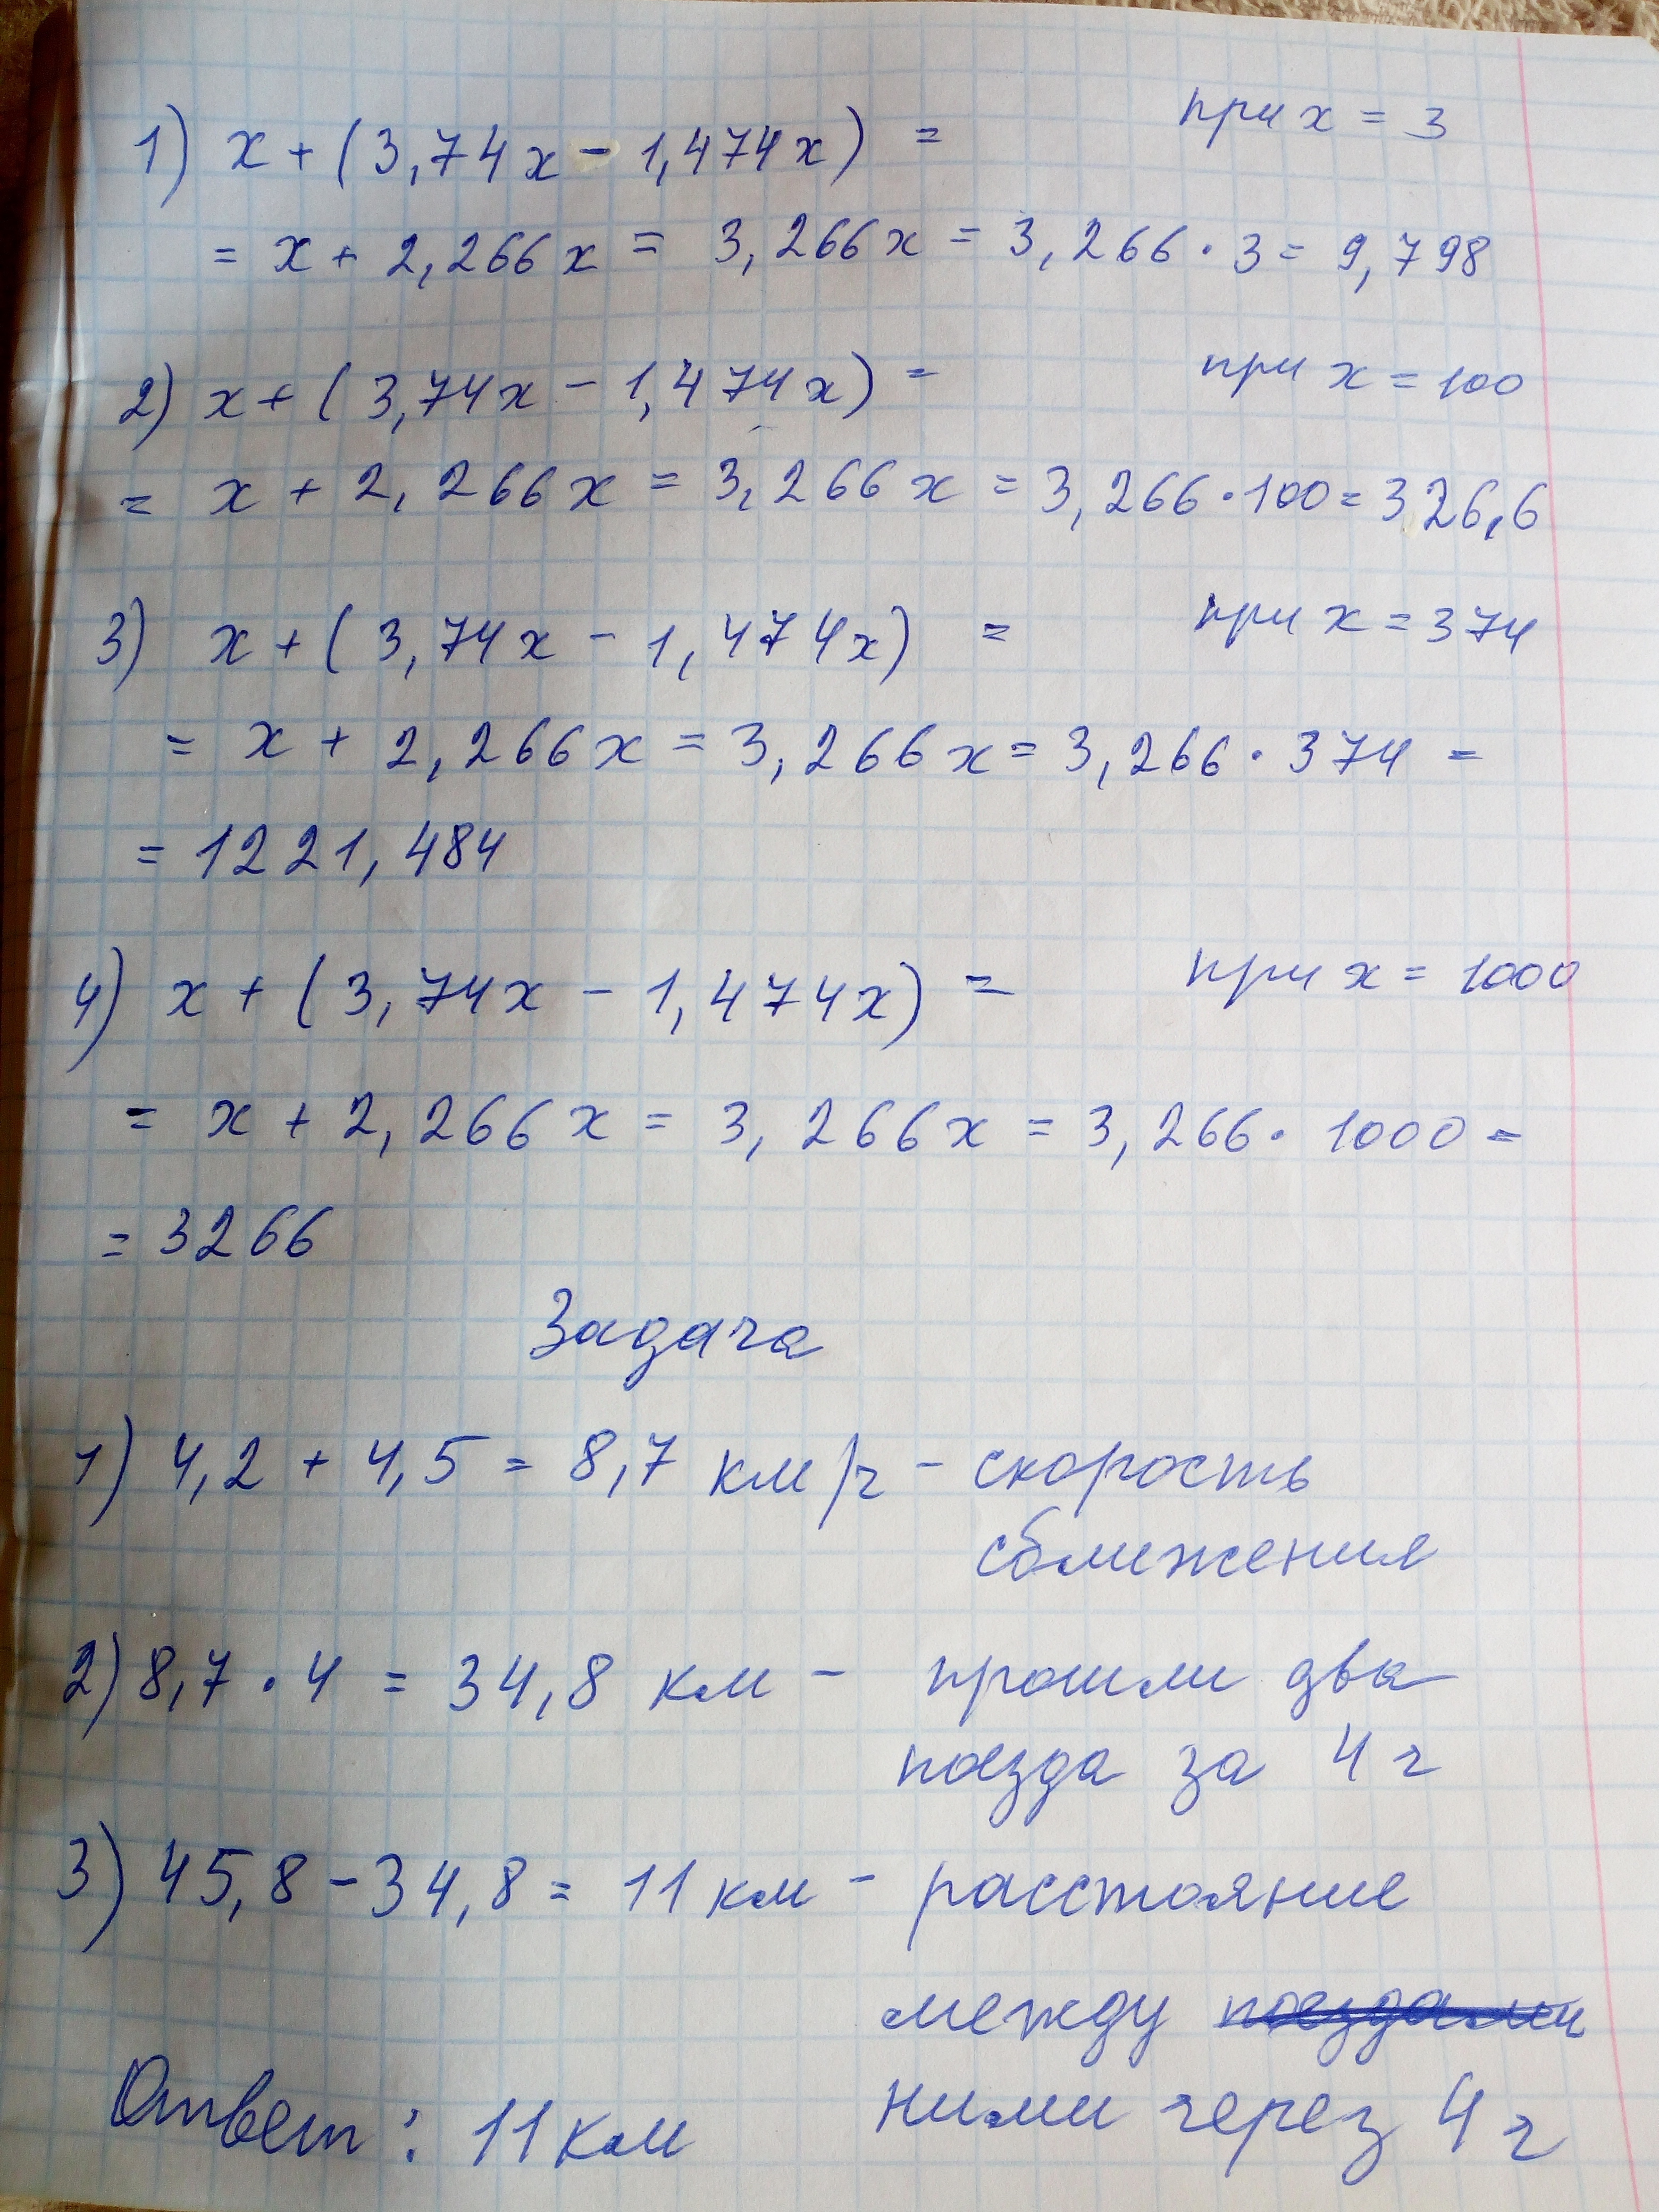 1) x + (3,74x - 1,474x) = при x = 3
= x + 2,266x = 3,266x = 3,266 · 3 = 9,798
2) x + (3,74x - 1,474x) = при x = 100
= x + 2,266x = 3,266x = 3,266 · 100 = 326,6
3) x + (3,74x - 1,474x) = при x = 374
= x + 2,266x = 3,266x = 3,266 · 374 =
= 1221,484
4) x + (3,74x - 1,474x) = при x = 1000
= x + 2,266x = 3,266x = 3,266 · 1000 =
= 3266
Задача
1) 4,2 + 4,5 = 8,7 км/ч - скорость
сближения
2) 8,7 · 4 = 34,8 км - прошли два
поезда за 4 ч
3) 45,8 - 34,8 = 11 км - расстояние
между поездами
ними через 4 ч
Ответ: 11 км